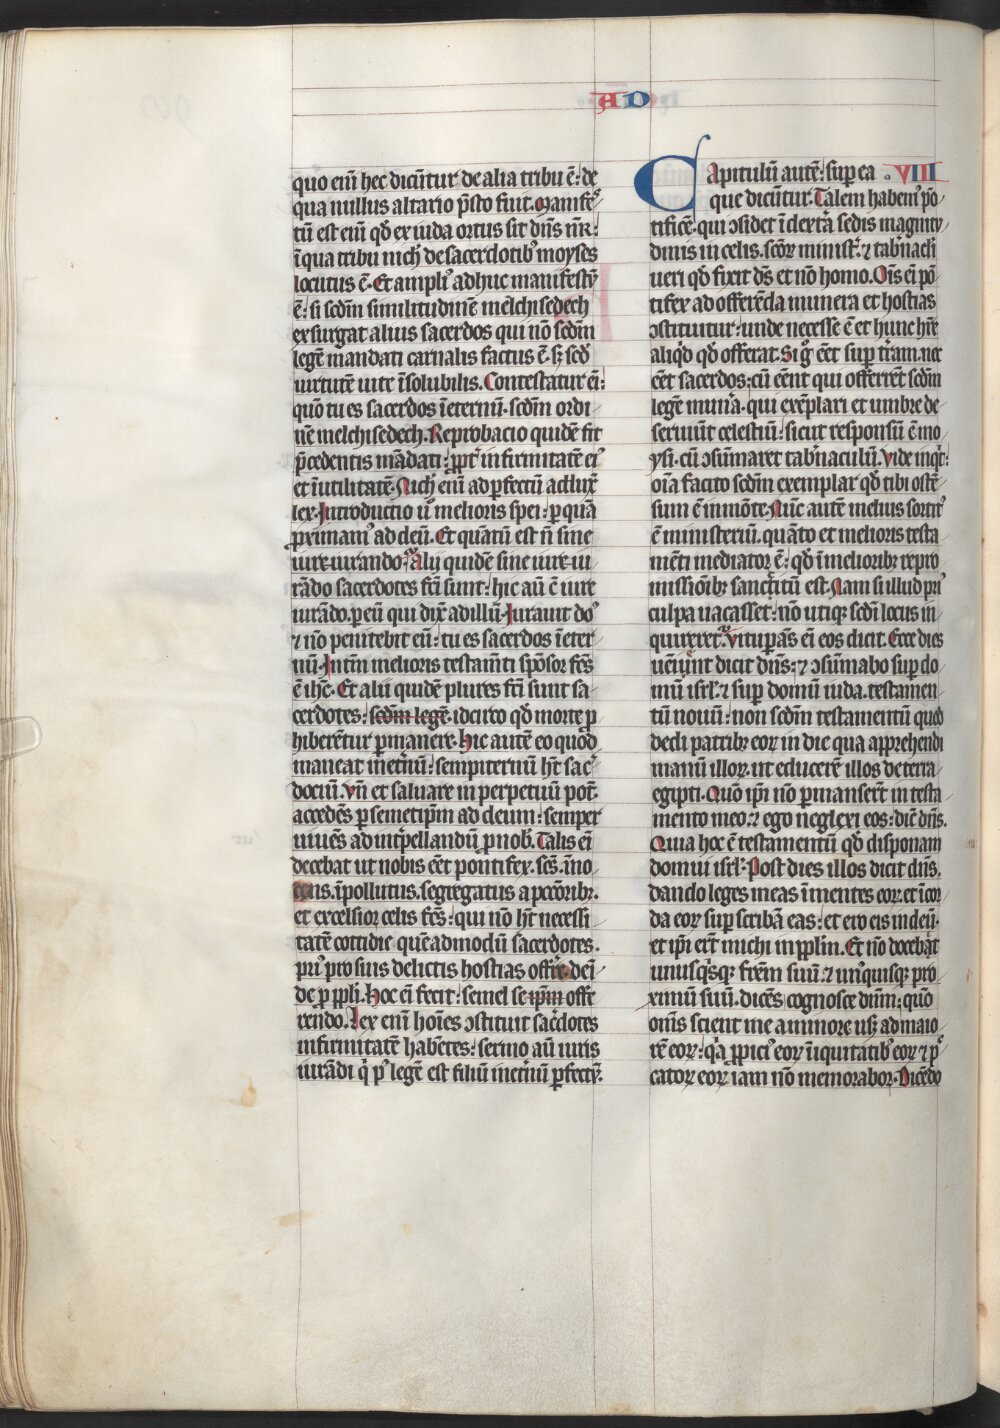 AD
quo eni᷑ hec dicu̅tur de alia tribu e̅: de
qua nullus altario p̅sto fuit. Manifes
tu̅ est eni᷑ qd̅ ex iuda ortus sit dn̅s nr̅:
i̅ qua tribu nich̅ de sacerdotib⁹ moyses
locutus e̅. Et ampli⁹ adhuc manifestu̅
e̅: si scd̅m similitudine̅ melchisedech
exsurgat alius sacerdos qui no̅ scd̅m
lege̅ mandati carnalis factus e̅. sꝫ scd̅
uirtute̅ uite i̅solubilis. Contestatur ei̅:
quo̅ tu es sacerdos i̅eternu̅. scd̅m ordi
ne̅ melchisedech. Reprobacio quide̅ fit
p̅cedentis ma̅dati: ꝓpt̅ infirmitate̅ ei⁹
et i̅utilitate̅. Nich̅ eni̅ ad perfectu̅ adduxit
lex. Introductio u̅ melioris spei: ꝑ qua̅
ꝓximam⁹ ad deu̅. Et qua̅tu̅ est n̅ sine
iure iurando. Alij quide̅ sine iure iu
ra̅do sacerdotes fc̅i sunt: hic au̅ e̅ iure
iura̅do. ꝑ eu̅ qui dix̅ ad illu̅. Iurauit do⁹
⁊ no̅ penitebit eu̅: tu es sacerdos i̅eter
nu̅. In tm̅ melioris testam̅ti spo̅sor fc̅s
e̅ ihc̅. Et alii quide̅ plures fc̅i sunt sa
cerdotes: scd̅m lege̅. idcirco qd̅ morte p
hibere̅tur ꝑmanere. Hic aute̅ eo quod
maneat i̅et̅nu̅: sempiternu̅ ht̅ sac̅
dociu̅. Vn̅ et saluare in perpetuu̅ pot̅.
accede̅s ꝑ semetip̅m ad deum: semper
uiue̅s ad int̅pellandu̅ ꝓ nob̅. Talis ei̅
decebat ut nobis ee̅t pontifex. sc̅s. i̅no
cens. i̅pollutus. segregatus a pcc̅orib.
et excelsior celis fc̅s: qui no̅ ht̅ necessi
tate̅ cottidie que̅admodu̅ sacerdotes.
pri⁹ pro suis delictis hostias offre. dei̅
de ꝓ ppl̅i. Hoc ei̅ fecit: semel se ip̅m offe
rendo. Lex eni̅ ho̅i̅es ꝯstituit sac̅dotes
infirmitate̅ habe̅tes: sermo au̅ iuris
iura̅di q̅ p⁹ lege̅ est filiu̅ i̅et̅nu̅ ꝑfectu̅.
Capitulu̅ aute̅: sup ea VIII
que dicu̅tur. Talem habem⁹ po̅
tifice̅. qui ꝯsidet i̅ dext̅a sedis magnitu
dinis in celis. sc̅oꝝ minist̅ ⁊ tab̅nacl̅i
ueri qd̅ fixit ds̅ et no̅ homo. Oi̅s ei̅ po̅
tifex ad offere̅da munera et hostias
ꝯstituitur: unde necesse e̅ et hunc h̅re
aliq̅d qd̅ offerat. Si g̅ ee̅t sup t̅ram. nec
ee̅t sacerdos: cu̅ ee̅nt qui offerre̅t scd̅m
lege̅ mun̅a. qui exe̅plari et umbre de
seruiu̅t celestiu̅: sicut responsu̅ e̅ mo
ysi. cu̅ ꝯsu̅maret tab̅naculu̅. Vide inq̅t:
oi̅a facito scd̅m exemplar qd̅ tibi oste̅
sum e̅ in mo̅te. Nu̅c aute̅ melius sortit⁹
e̅ ministeriu̅. qua̅to et melioris testa
me̅ti mediator e̅: qd̅ i̅ meliorib repro
missio̅ib sancc̅itu̅ est. Nam si illud pri⁹
culpa uacasset: no̅ utiqꝫ scd̅i locus in
quireret̅. Vitupa̅s ei̅ eos dicit. Ecce dies
ueniu̅t dicit dn̅s: ⁊ ꝯsu̅mabo sup do
mu̅ isrl̅. ⁊ sup domu̅ iuda. testamen
tu̅ nouu̅: non scd̅m testamentu̅ quod
dedi patrib eoꝝ in die qua apprehendi
manu̅ illoꝝ. ut educere̅ illos de terra
egipti. Quo̅ ip̅i no̅ ꝑmanser̅t in testa
mento meo: ⁊ ego neglexi eos: dic̅ dn̅s.
Quia hoc e̅ testamentu̅ qd̅ disponam
domui isrl̅. Post dies illos dicit dn̅s.
dando leges meas i̅ mentes eoꝝ. et i̅ cor
da eoꝝ sup scriba̅ eas: et ero eis in deu̅.
et ip̅i er̅t michi in ppl̅m. Et no̅ docebit
unusq̅sqꝫ fre̅m suu̅. ⁊ un⁹quisqꝫ pro
ximu̅ suu̅. dice̅s cognosce dn̅m: quo̅
om̅s scient me a minore usqꝫ ad maio
re̅ eoꝝ: q̅a ꝓpici⁹ eoꝝ i̅iquitatib⁹ eoꝝ ⁊ pc̅
catoꝝ eoꝝ iam no̅ memorabor. Dice̅do